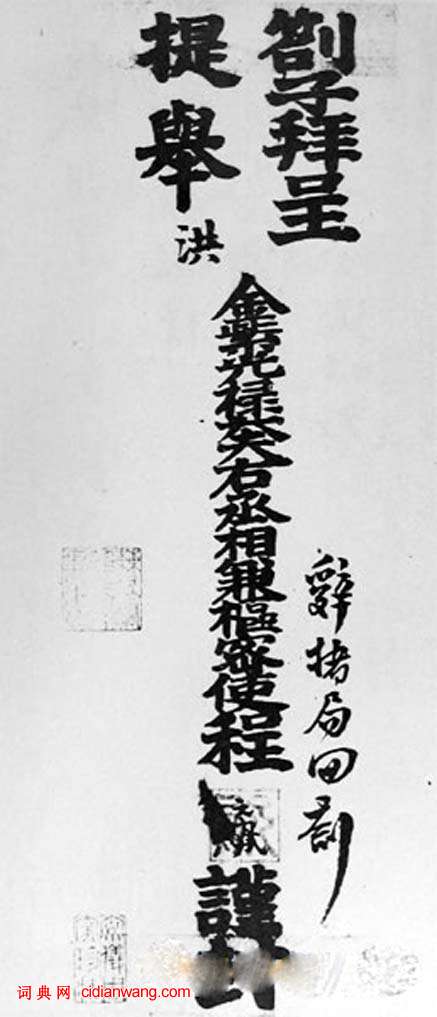 劄子拜呈
提舉
洪
辭楮局回劄
金紫光祿大夫右丞相兼樞密使程
元鳳
謹封
词典网 cidianwang.com